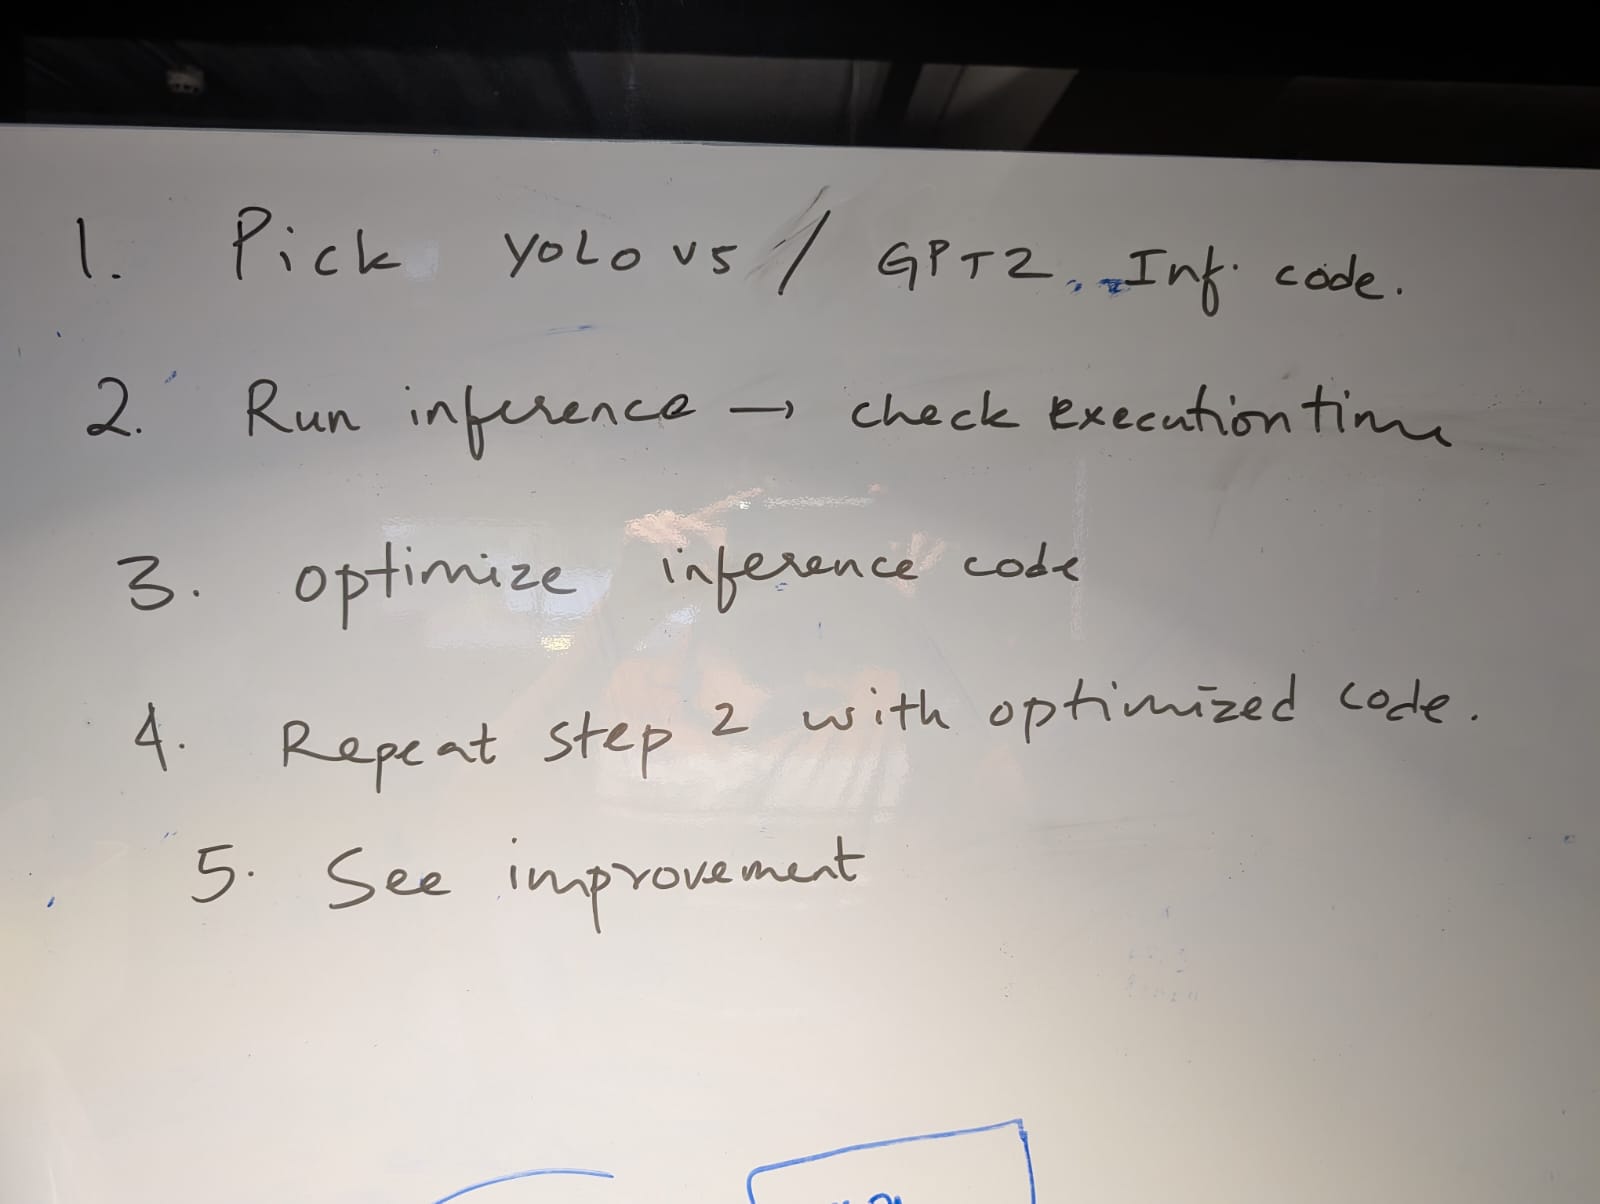 1. Pick YOLO v5 / GPT2 Inf. code.
2. Run inference → check Execution time
3. optimize inference code
4. Repeat step 2 with optimized code.
5. See improvement